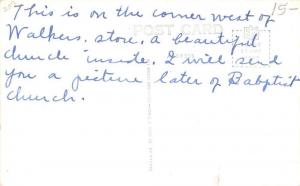 15-
This is on the corner west of
Walkers. store. a beautiful
church inside. I will send
you a picture later of Babptist
church.
POST CARD